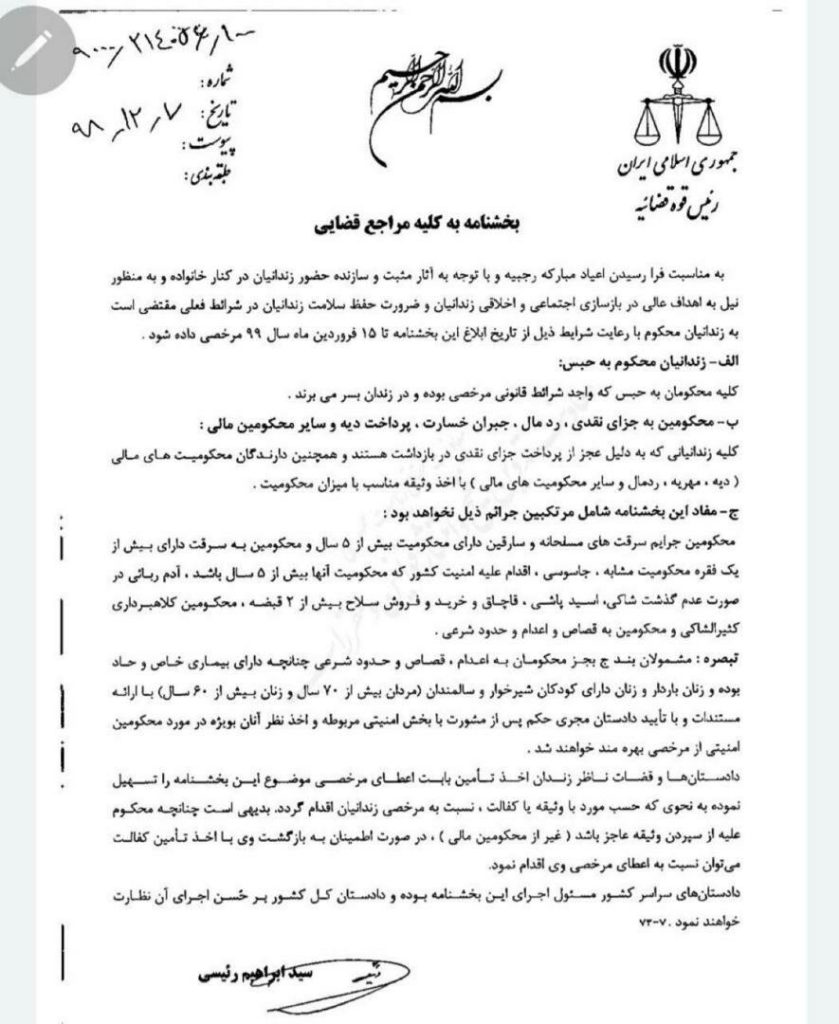 بسم الله الرحمن الرحیم
جمهوری اسلامی ایران
رئیس قوه قضائیه
شماره: ۹۰۰۰/۲۱۴۰۵۶/۱۰۰
تاریخ: ۹۸/۱۲/۷
پیوست:
طبقه‌بندی:
بخشنامه به کلیه مراجع قضایی
به مناسبت فرا رسیدن اعیاد مبارکه رجبیه و با توجه به آثار مثبت و سازنده حضور زندانیان در کنار خانواده و به منظور
نیل به اهداف عالی در بازسازی اجتماعی و اخلاقی زندانیان و ضرورت حفظ سلامت زندانیان در شرائط فعلی مقتضی است
به زندانیان محکوم با رعایت شرایط ذیل از تاریخ ابلاغ این بخشنامه تا ۱۵ فروردین ماه سال ۹۹ مرخصی داده شود .
الف- زندانیان محکوم به حبس:
کلیه محکومان به حبس که واجد شرائط قانونی مرخصی بوده و در زندان بسر می برند .
ب- محکومین به جزای نقدی ، رد مال ، جبران خسارت ، پرداخت دیه و سایر محکومین مالی :
کلیه زندانیانی که به دلیل عجز از پرداخت جزای نقدی در بازداشت هستند و همچنین دارندگان محکومیت های مالی
( دیه ، مهریه ، ردمال و سایر محکومیت های مالی ) با اخذ وثیقه مناسب با میزان محکومیت .
ج- مفاد این بخشنامه شامل مرتکبین جرائم ذیل نخواهد بود :
محکومین جرایم سرقت های مسلحانه و سارقین دارای محکومیت بیش از ۵ سال و محکومین به سرقت دارای بیش از
یک فقره محکومیت مشابه ، جاسوسی ، اقدام علیه امنیت کشور که محکومیت آنها بیش از ۵ سال باشد ، آدم ربائی در
صورت عدم گذشت شاکی، اسید پاشی ، قاچاق و خرید و فروش سلاح بیش از ۲ قبضه ، محکومین کلاهبرداری
کثیرالشاکی و محکومین به قصاص و اعدام و حدود شرعی .
تبصره : مشمولان بند ج بجز محکومان به اعدام ، قصاص و حدود شرعی چنانچه دارای بیماری خاص و حاد
بوده و زنان باردار و زنان دارای کودکان شیرخوار و سالمندان (مردان بیش از ۷۰ سال و زنان بیش از ۶۰ سال) با ارائه
مستندات و با تأیید دادستان مجری حکم پس از مشورت با بخش امنیتی مربوطه و اخذ نظر آنان بویژه در مورد محکومین
امنیتی از مرخصی بهره مند خواهند شد .
دادستان‌ها و قضات ناظر زندان اخذ تأمین بابت اعطای مرخصی موضوع این بخشنامه را تسهیل
نموده به نحوی که حسب مورد با وثیقه یا کفالت ، نسبت به مرخصی زندانیان اقدام گردد. بدیهی است چنانچه محکوم
علیه از سپردن وثیقه عاجز باشد ( غیر از محکومین مالی ) ، در صورت اطمینان به بازگشت وی با اخذ تأمین کفالت
می‌توان نسبت به اعطای مرخصی وی اقدام نمود.
دادستان‌های سراسر کشور مسئول اجرای این بخشنامه بوده و دادستان کل کشور بر حُسن اجرای آن نظارت
خواهند نمود . ۷-۷۳
سید ابراهیم رئیسی